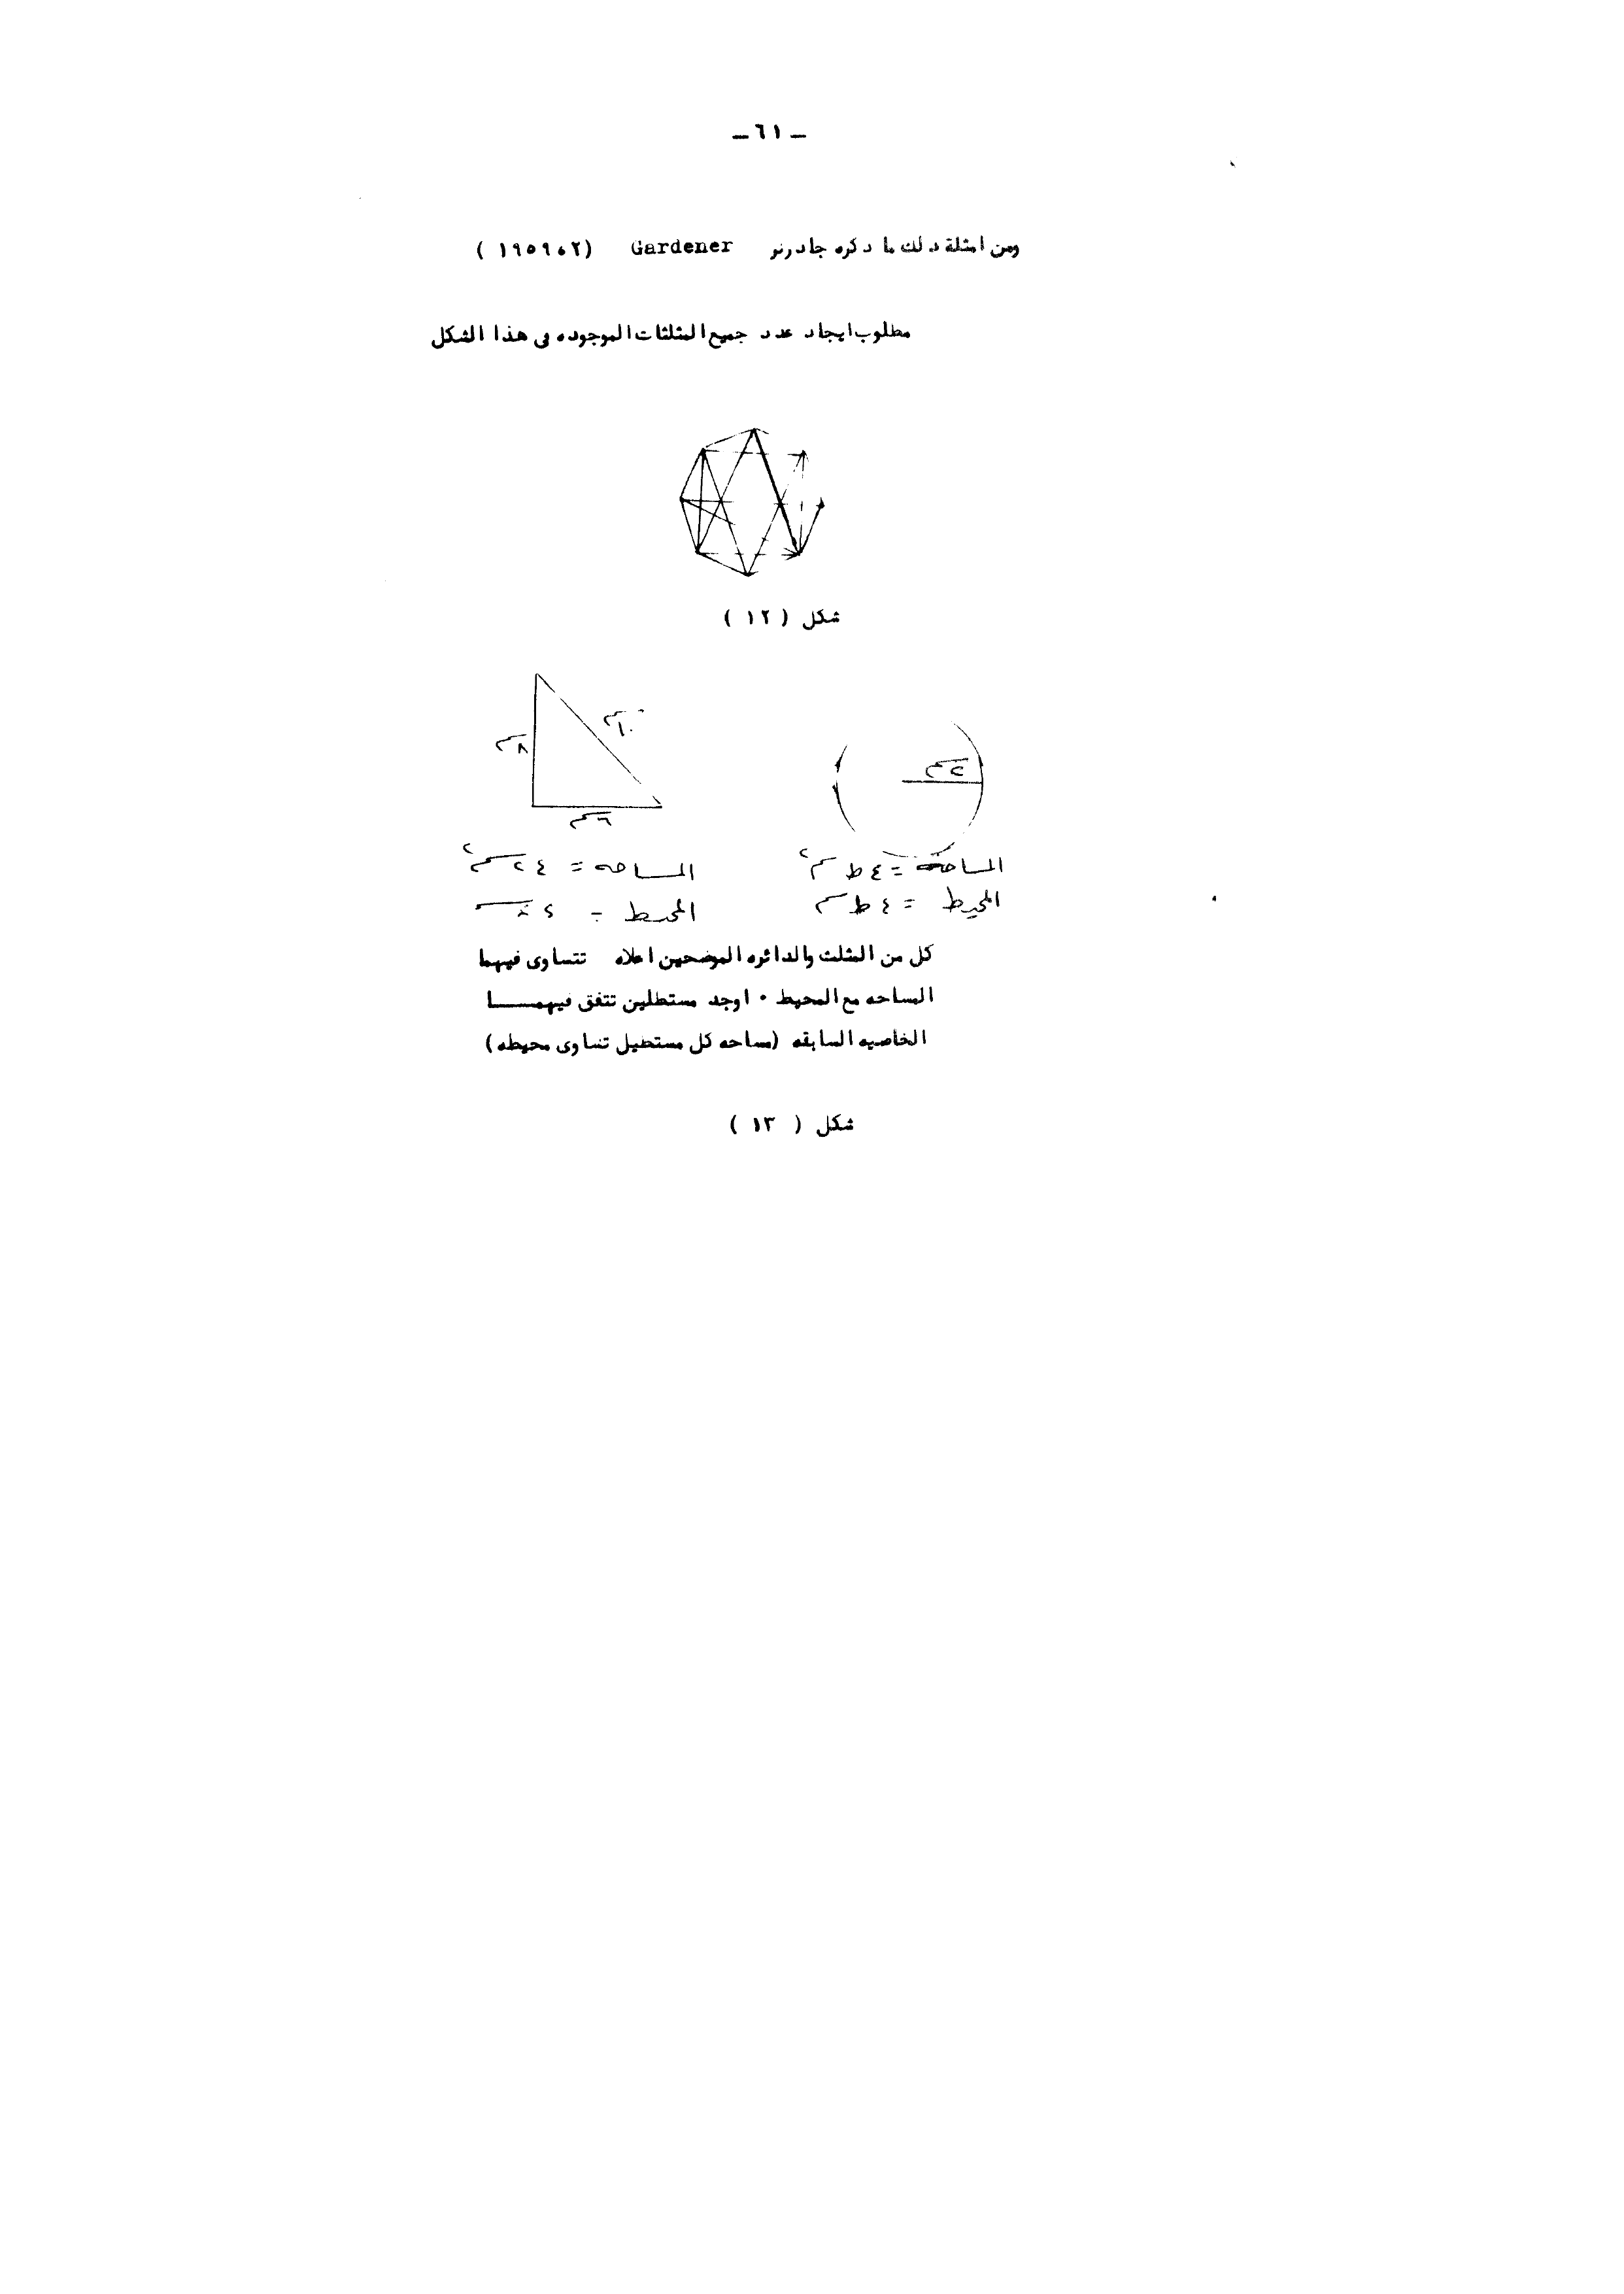 ـ ٦١ ـ
ومن امثلة دلك ما دكره جادرنر Gardener (١٩٥٩،٢)
مطلوب ايجاد عدد جميع المثلثات الموجوده فى هذا الشكل
شكل ( ١٢ )
١٠ سم
٨ سم
٢ سم
٦ سم
المساحه = ٤ ط سم٢
المساحه = ٢٤ سم٢
المحيط = ٤ ط سم
المحيط =
كل من المثلث والدائره الموضحين اعلاه تتساوى فيهما
المساحه مع المحيط . اوجد مستطلين تتفق فيهمـــــا
الخاصيه السابقه (مساحه كل مستطيل تساوى محيطه)
شكل ( ١٣ )